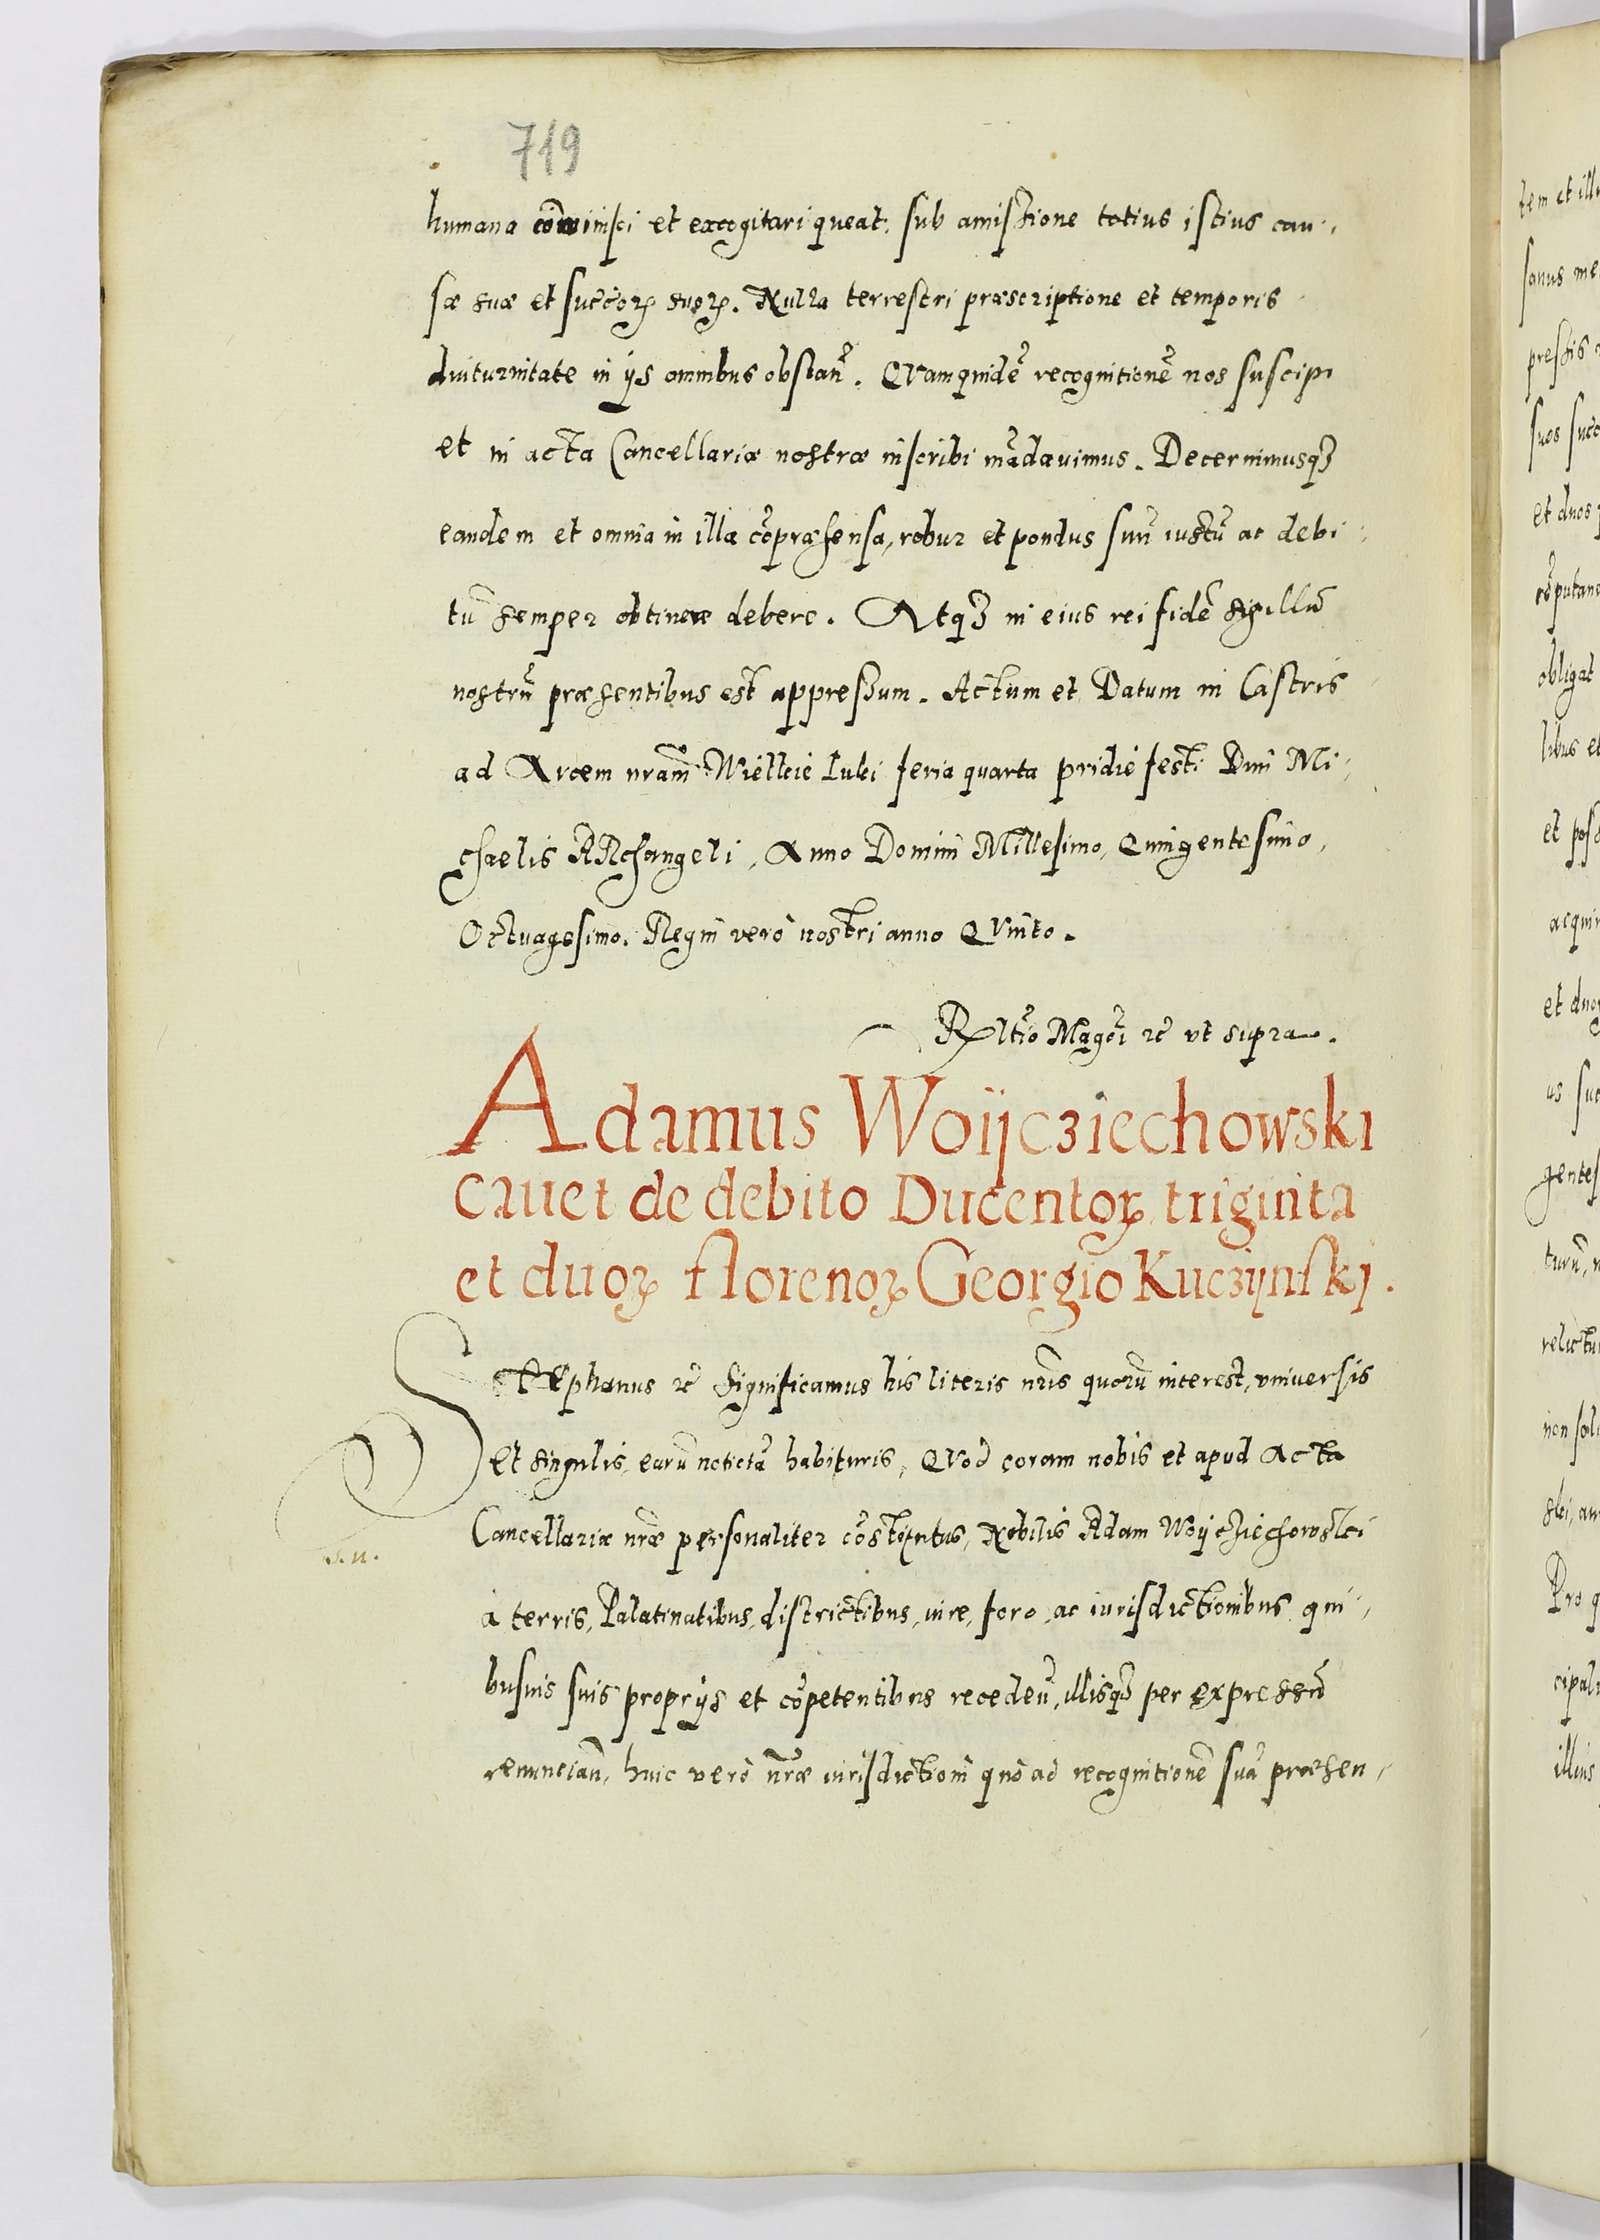 719
humana com̄inisci et excogitari queat, sub amissione totius istius cau-
sæ suæ et succoꝝ suoꝝ. Nulla terrestri præscriptione et temporis
diuturnitate in ijs omnibus obstan̄. Quamquidē recognitionē nos suscipi
et in acta Cancellariæ nostræ inscribi mādauimus. Decernimusqꝫ
eandem et omnia in illa cōpræhensa, robur et pondus suū iustū ac debi-
tū semper obtinere debere. Atqꝫ in eius rei fidē sigillū
nostrū præsentibus est appressum. Actum et Datum in Castris
ad Arcem nram̄ Wielkie Luki feria quarta pridie festi Diui Mi-
chaelis ARchangeli, Anno Domini Millesimo, Quingentesimo,
Octuagesimo. Regni verò nostri anno Quinto.
Rltīo Magcī rc̄ vt supra.
Adamus Woijcziechowski
cauet de debito Ducentoꝝ triginta
et duoꝝ florenoꝝ Georgio Kuczijnskj.
Stephanus rc̄ Significamus his literis nris̄ quorū interest, vniuersis
et singulis, earū notictā habituris, Quod coram nobis et apud Acta
Cancellariæ nrǣ personaliter cōstitutus, Nobilis Adam Woijcziechowski
à terris, Palatinatibus, districtibus, iure, foro, ac iurisdictionibus qui-
busuis suis proprijs et cōpetentibus recedeñ, illisqꝫ per expressū
renuncian̄, huic verò nr̄æ iurisdictioni quo ad recognitionē suā præsen-